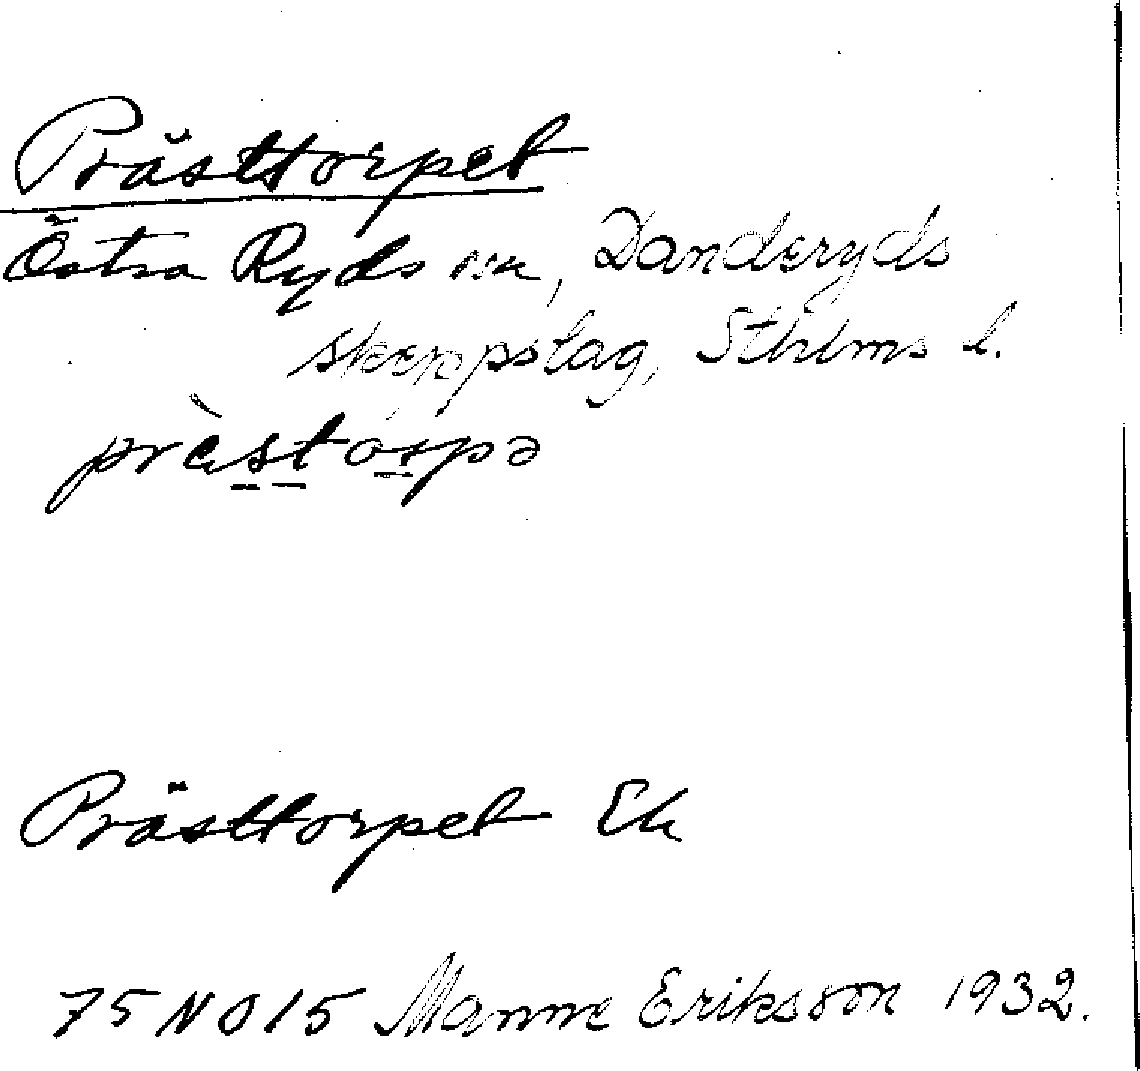 Prästtorpet
Östra Ryds sn, Danderyds
skeppslag, Sthlms l.
præ̀stórpə
Prästtorpet Ek
75 NO 15 Manne Eriksson 1932.